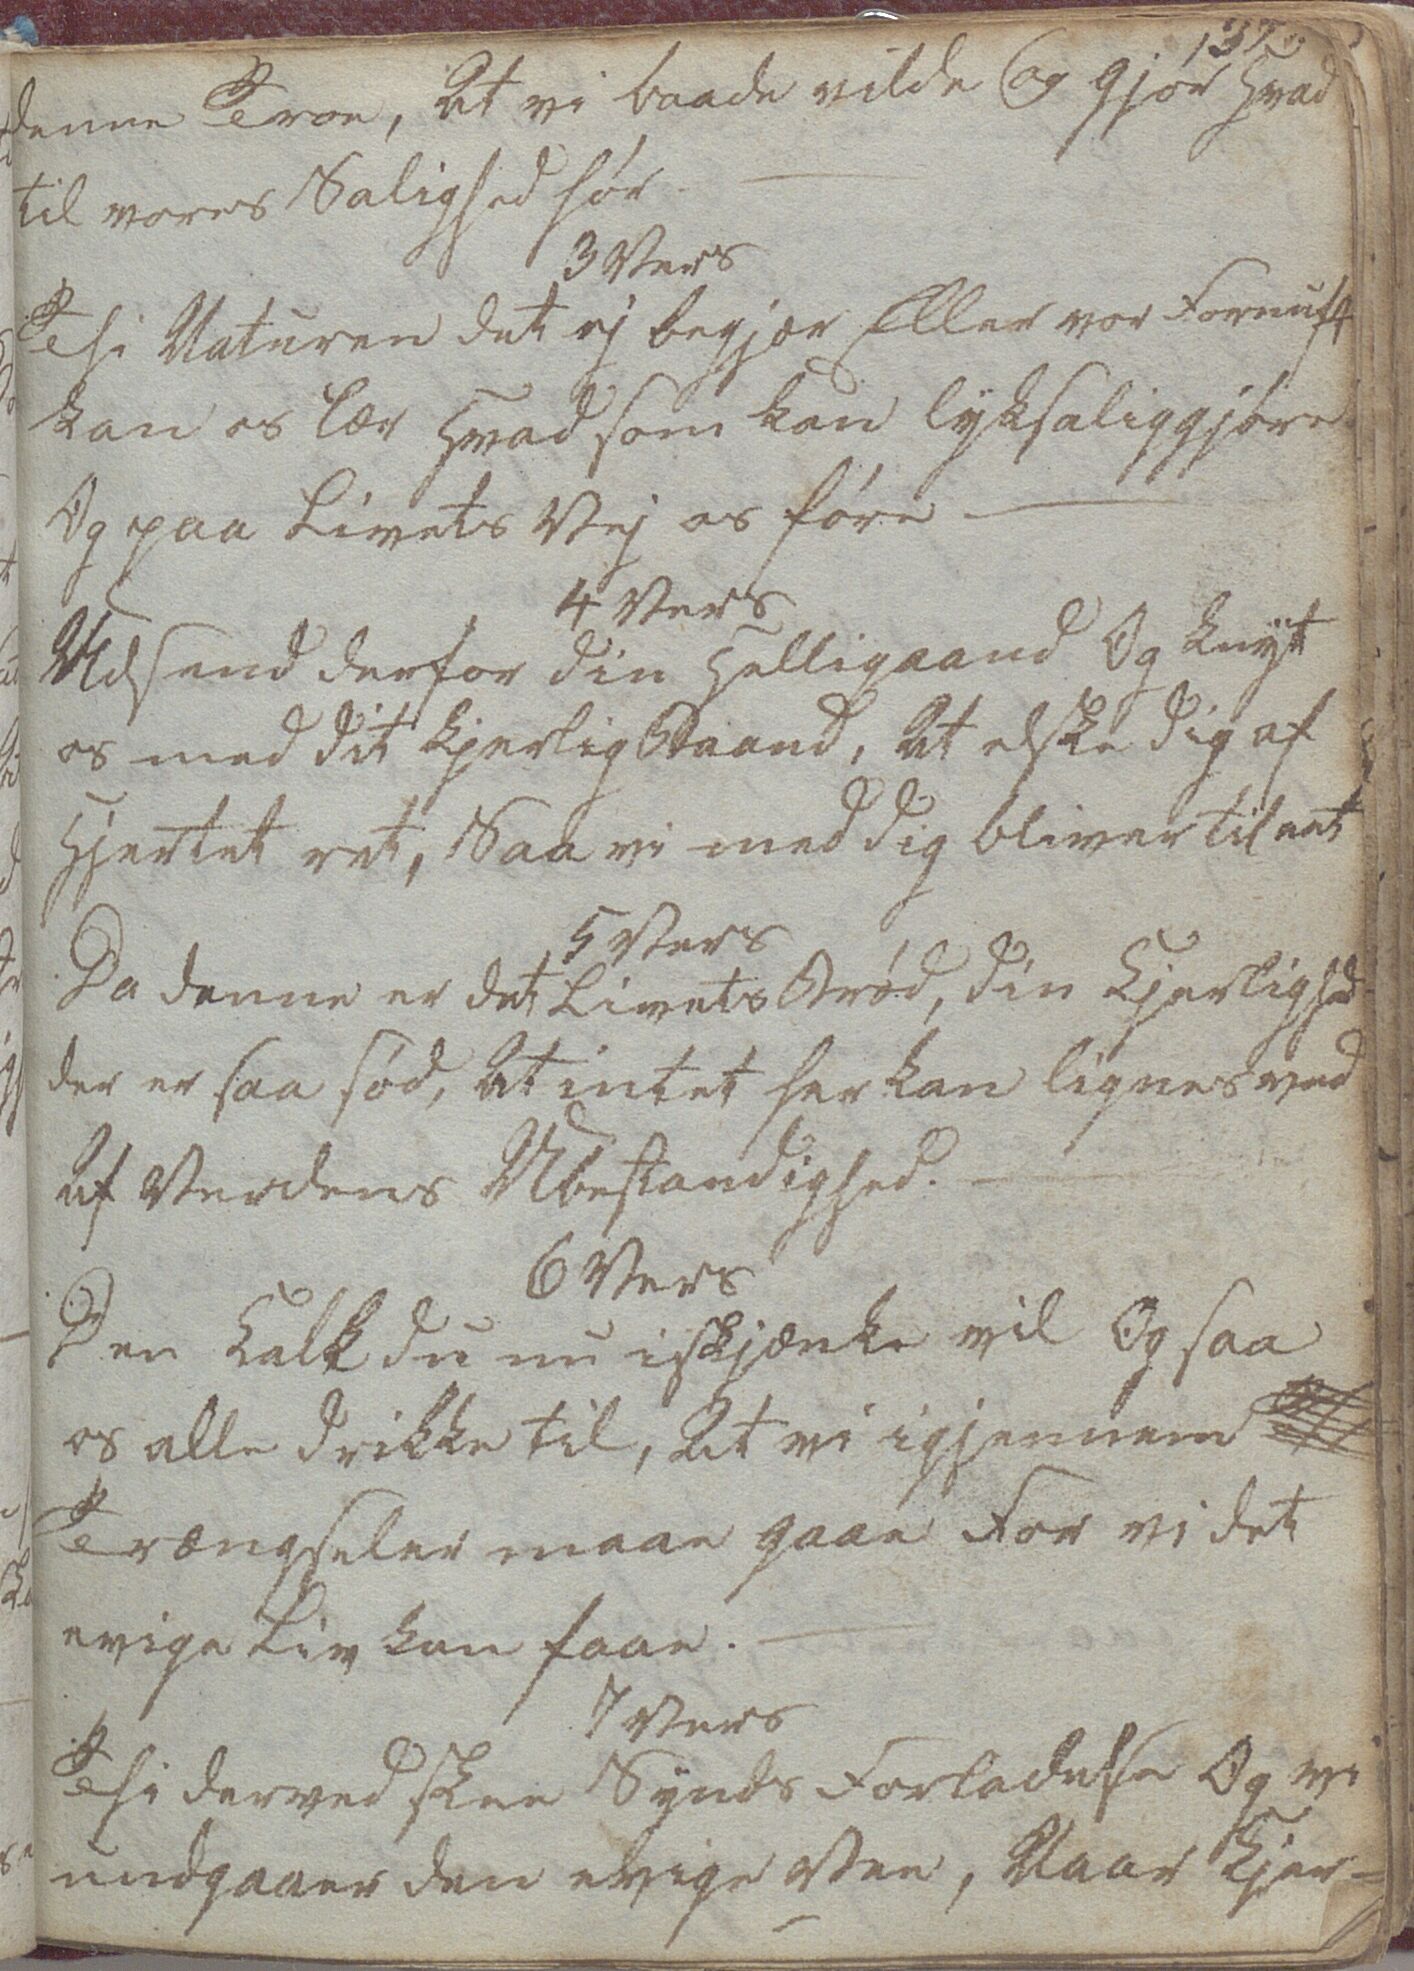 137.
denne Troe, At vi baade vilde Og gjór Hvad
til vores Salighed hór
3 Vers
Thi Naturen det ej begjær Eller vor Fornuft
kan os lær Hvad som kan lyksaliggjóre
Og paa Livets Vej os fóre
4 Vers
Udsend derfor din Helligaand Og knyt
os med dit kjerlig Baand, At elske dig af
Hjertet ret, Saa vi med dig bliver til eet
5 Vers
Da denne er det Livets Bród, din Kjerlighed
der er saa sód, At intet her kan lignes ved
Af Verdens Ubestandighed.
6 Vers
Den Kalk du nu iskjænke vil Og saa
os alle drikke til, At vi igjennem
Trængseler maae gaae For vi det
evige Liv kan faae.
7 Vers
Thi derved skee Synds Forladelse Og vi
undgaaer den evige Vee, Naar Kjer-